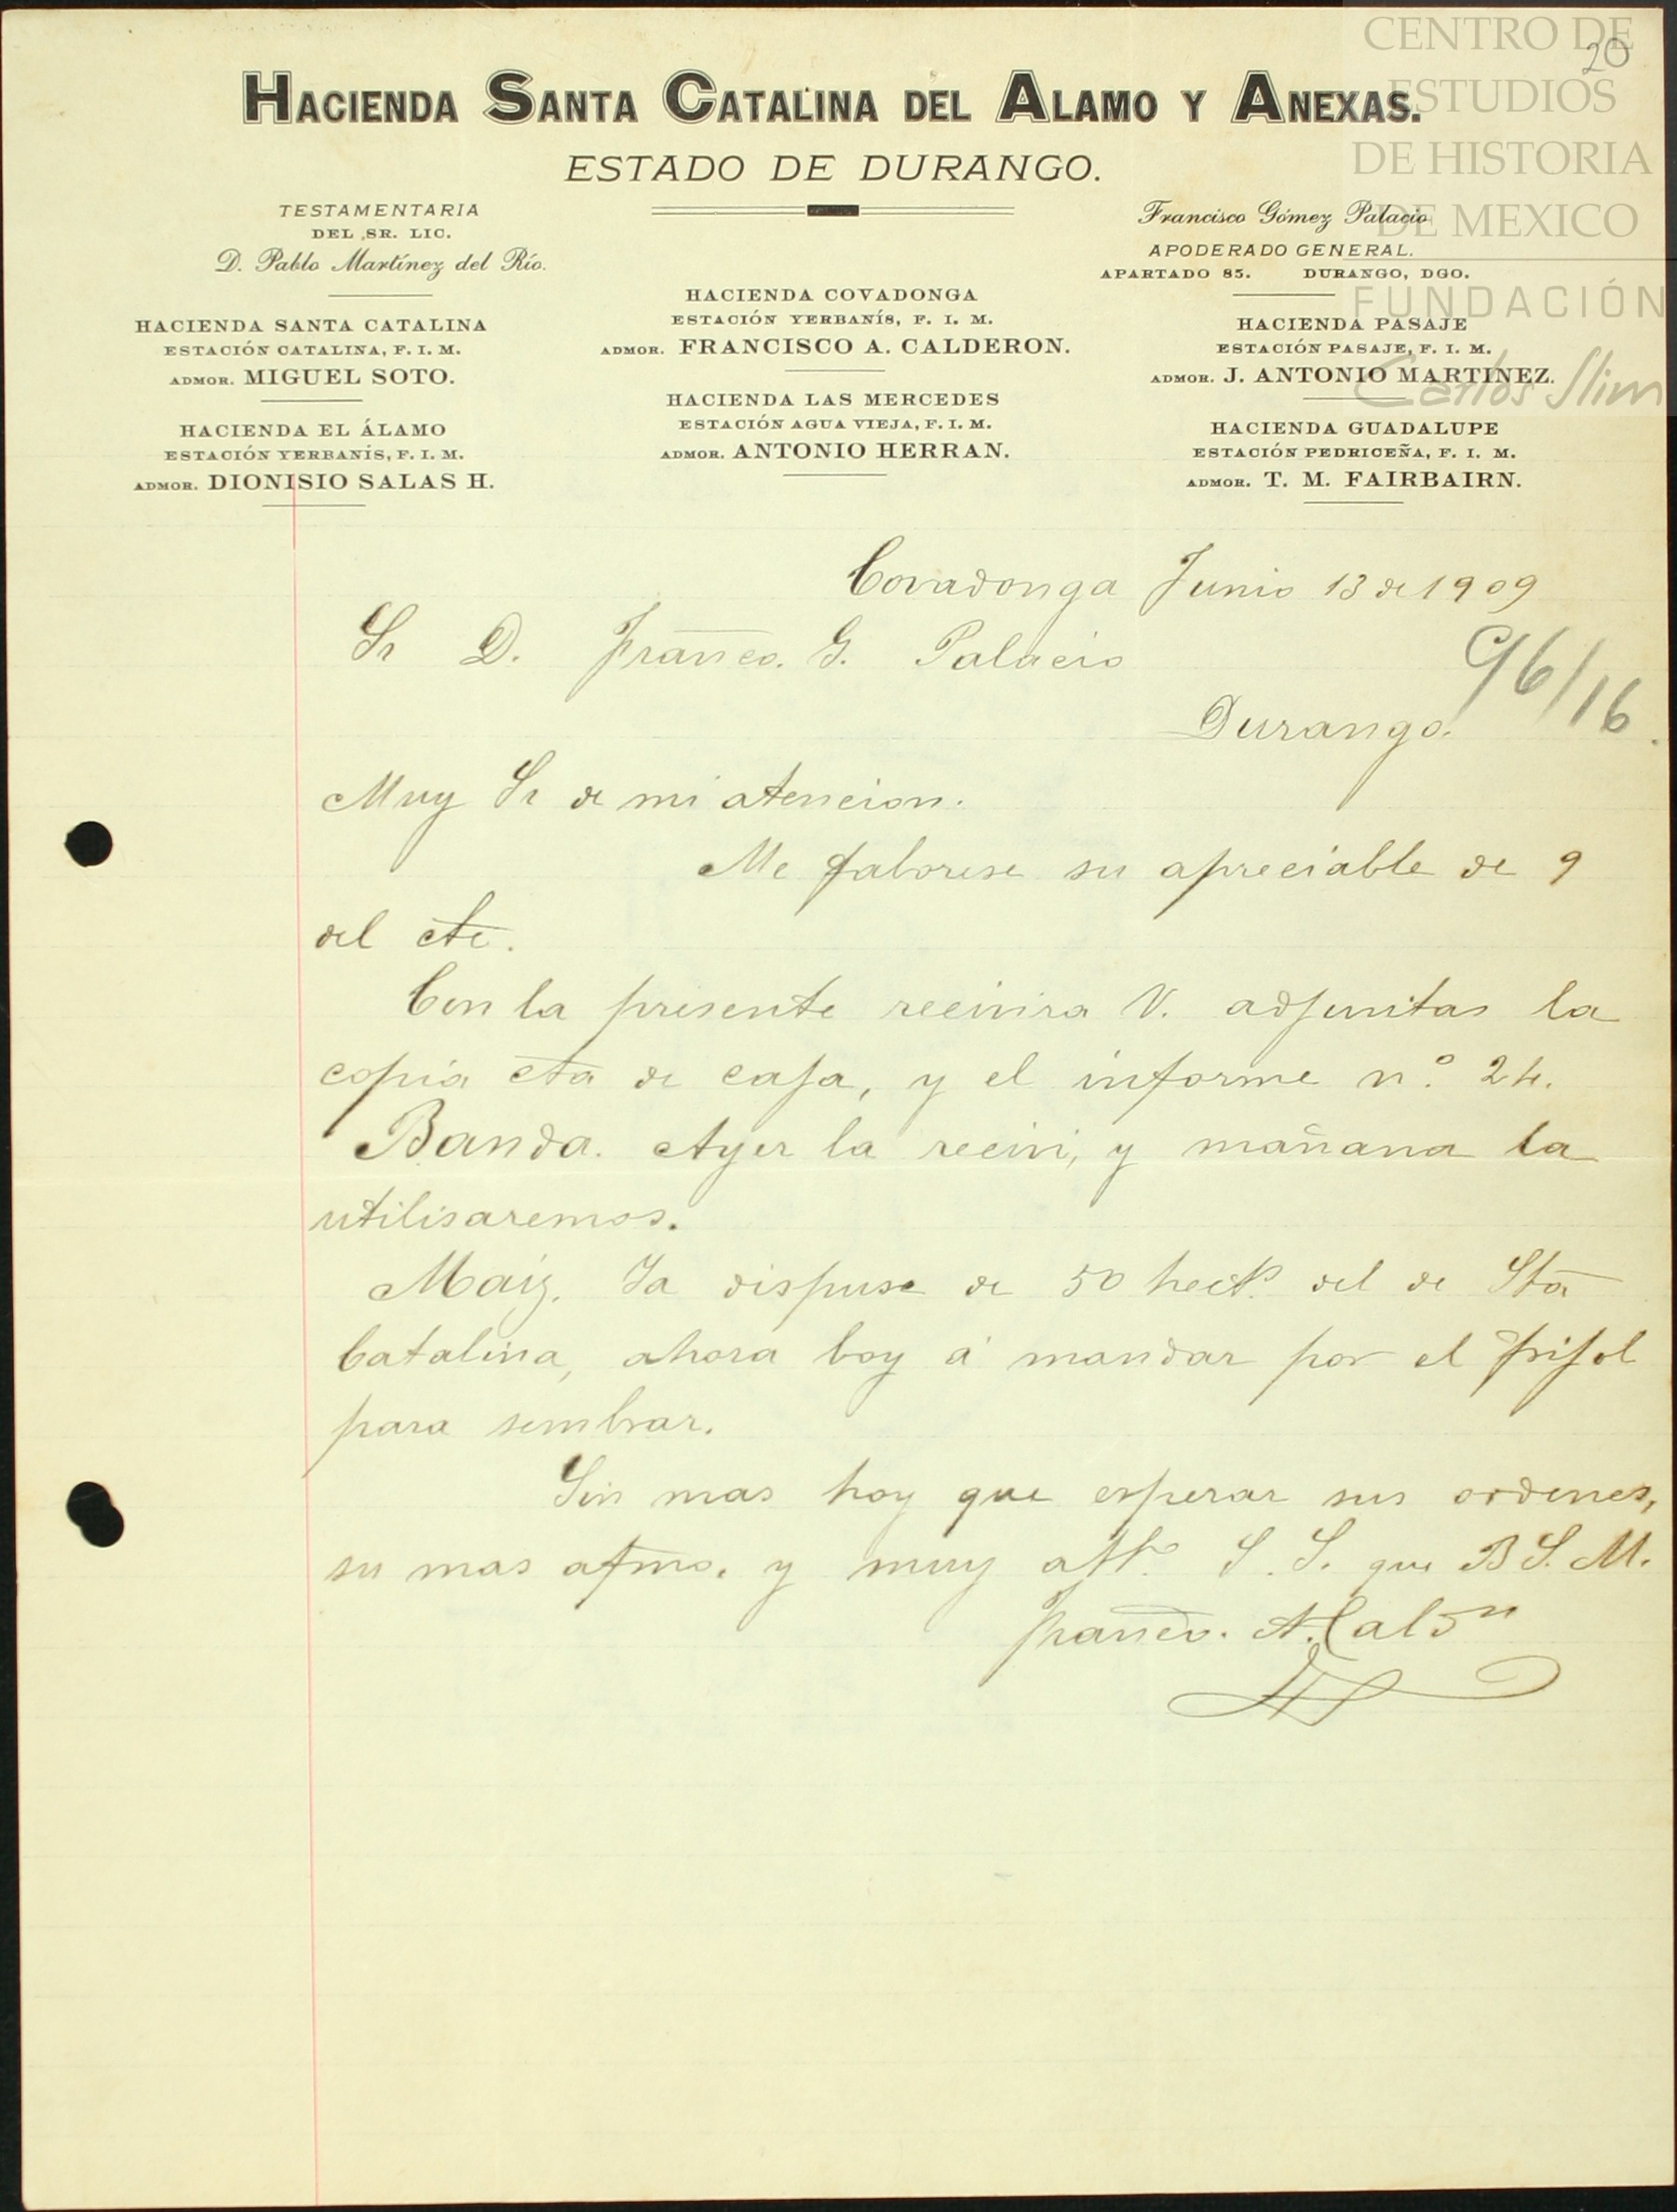 CENTRO DE
ESTUDIOS
DE HISTORIA
DE MEXICO
FUNDACIÓN
Carlos Slim
20
HACIENDA SANTA CATALINA DEL ALAMO Y ANEXAS.
ESTADO DE DURANGO.
TESTAMENTARIA
DEL SR. LIC.
D. Pablo Martínez del Río.
HACIENDA SANTA CATALINA
ESTACIÓN CATALINA, F. I. M.
ADMOR. MIGUEL SOTO.
HACIENDA EL ÁLAMO
ESTACIÓN YERBANÍS, F. I. M.
ADMOR. DIONISIO SALAS H.
HACIENDA COVADONGA
ESTACIÓN YERBANÍS, F. I. M.
ADMOR. FRANCISCO A. CALDERON.
HACIENDA LAS MERCEDES
ESTACIÓN AGUA VIEJA, F. I. M.
ADMOR. ANTONIO HERRAN.
Francisco Gómez Palacio
APODERADO GENERAL.
APARTADO 85. DURANGO, DGO.
HACIENDA PASAJE
ESTACIÓN PASAJE, F. I. M.
ADMOR. J. ANTONIO MARTINEZ.
HACIENDA GUADALUPE
ESTACIÓN PEDRICEÑA, F. I. M.
ADMOR. T. M. FAIRBAIRN.
Covadonga Junio 13 de 1909
Sr D. Franco. G. Palacio
Durango.
Muy Sr de mi atencion.
Me faborese su apreciable de 9
del cte.
Con la presente recivira V. adjuntas la
copia cta de caja, y el informe n.º 24.
Banda. Ayer la recivi, y mañana la
utilisaremos.
Maiz. Ya dispuse de 50 hects. del de Sta
Catalina, ahora boy á mandar por el frijol
para sembrar.
Sin mas hoy que esperar sus ordenes,
su mas afmo. y muy atto. S. S. que B S. M.
Franco. A. Calon